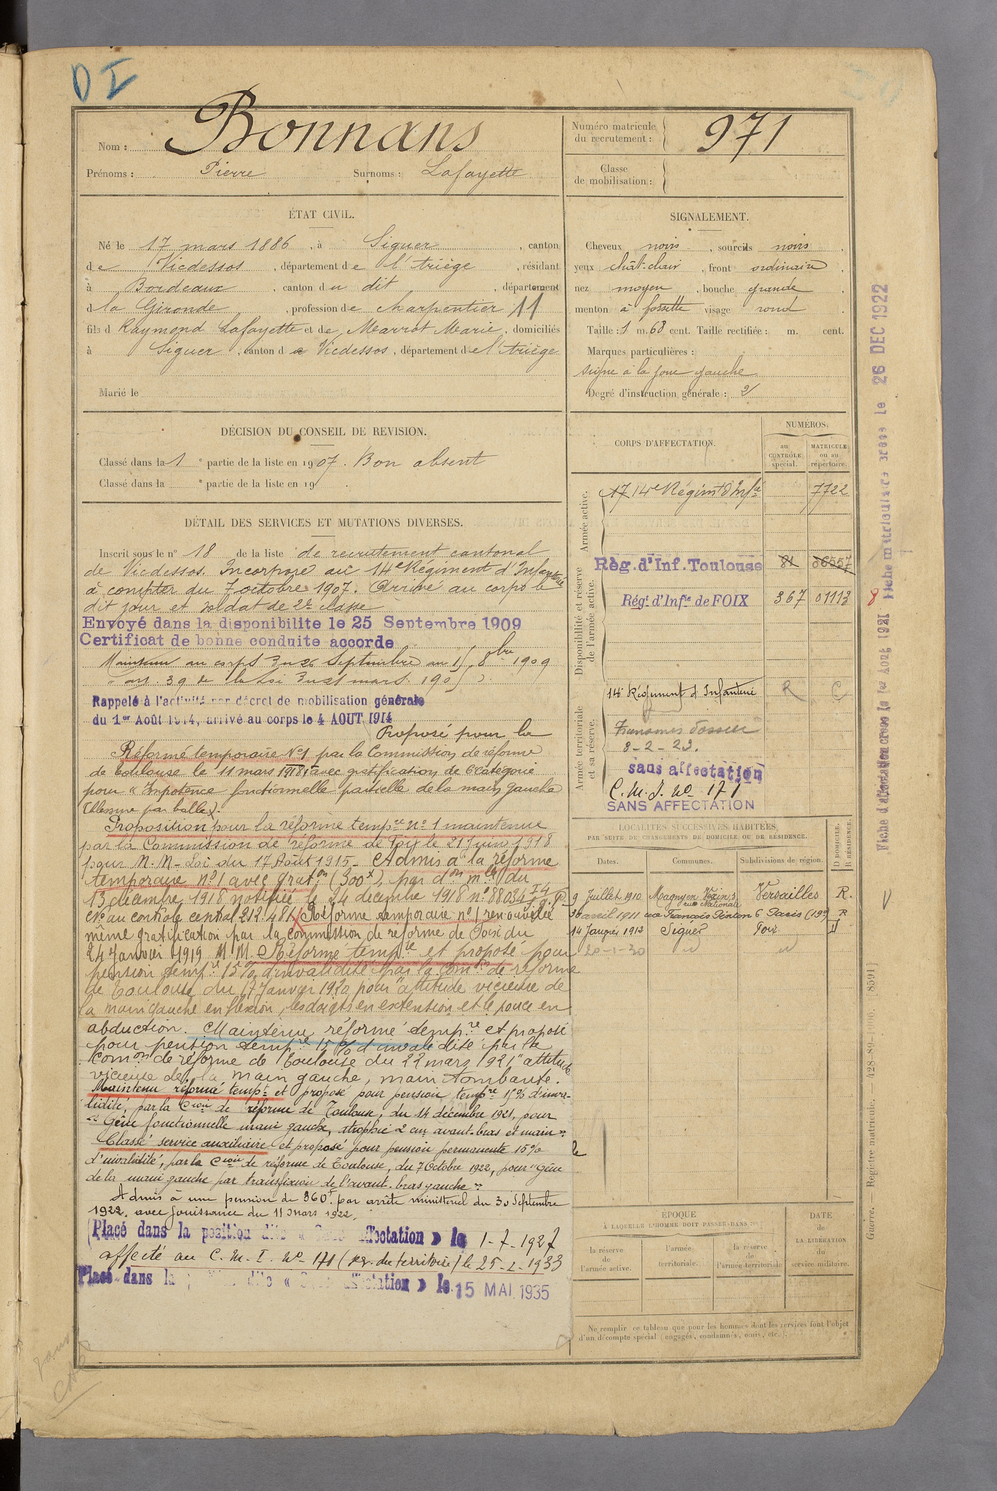 D I
Nom : Bonnans
Prénoms : Pierre Surnoms : Lafayette
ÉTAT CIVIL.
Né le 17 mars 1886, à Siguer, canton
de Vicdessos, département de l'Ariège, résidant
à Bordeaux, canton du dit, département
d la Gironde, profession de charpentier 11
fils d Raymond Lafayette et de Marrot Marie, domiciliés
à Siguer, canton d e Vicdessos, département de l'Ariège
Marié le
DÉCISION DU CONSEIL DE REVISION.
Classé dans la 1 e partie de la liste en 1907. Bon absent
Classé dans la e partie de la liste en 19 .
DÉTAIL DES SERVICES ET MUTATIONS DIVERSES.
Inscrit sous le n° 18 de la liste de recrutement cantonal
de Vicdessos. Incorporé au 14e Régiment d'Infanterie
à compter du 7 octobre 1907. Arrivé au corps le
dit jour et soldat de 2e classe
Envoyé dans la disponibilite le 25 Septembre 1909
Certificat de bonne conduite accorde
Maintenu au corps du 26 Septembre au 8bre 1909
art. 39 de la loi du 21 mars 1905
Rappelé à l'activité par décret de mobilisation générale
du 1er Août 1914, arrivé au corps le 4 AOUT 1914
Proposé pour la
Réforme temporaire N°1 par la Commission de réforme
de Toulouse le 11 mars 1918, avec gratification de 6e catégorie
pour « Impotence fonctionnelle partielle de la main gauche
(Blessure par balle).
Proposition pour la réforme tempre n° 1 maintenue
par la Commission de réforme de Foix le 21 juin 1918
pour N. M- Loi du 17 Août 1915- Admis à la réforme
temporaire N°1 avec graton (300 x), par don mlle du
13 décembre 1918 notifiée le 24 décembre 1918 n° 88034
N° au controle central 212.481. Réforme temporaire n°1 renouvelée
même gratification par la commission de réforme de Foix du
24 Janvier 1919 M.M. Réforme tempre et proposé pour
pension tempre 15% d'invalidité par la Comon de réforme
de Toulouse du 17 Janvier 1920 pour "attitude vicieuse de
la main gauche en flexion, les doigts en extension et le pouce en
abduction. Maintenu réformé tempre et proposé
pour pension tempre 15% d'invalidité par la
comon de réforme de Toulouse du 22 mars 1921 "attitude
vicieuse de la main gauche, main tombante.
Maintenu réformé tempre et proposé pour pension tempre 15% d'inva-
lidité, par la Cion de réforme de Toulouse, du 14 décembre 1921, pour
"Gêne fonctionnelle main gauche, atrophie 2 cm avant-bras et main"
Classé service auxiliaire et proposé pour pension permanente 15%
d'invalidité, par la Cion de réforme de Toulouse, du 7 Octobre 1922, pour "gêne
de la main gauche par transfixion de l'avant-bras gauche"
Admis à une pension de 360f par arrêté ministériel du 30 Septembre
1922, avec jouissance du 11 mars 1922.
Placé dans la position dite « Sans affectation » le 1-7-1927
affecté au C. M. I. N° 171 (rég. du territoire) le 25-2-1933
Placé dans la dite « Sans affectation » le 15 MAI 1935
Numéro matricule du recrutement : 971
Classe de mobilisation :
SIGNALEMENT.
Cheveux noirs, sourcils noirs
yeux chât-clair, front ordinaire
nez moyen, bouche grande
menton à fossette visage rond
Taille : 1 m. 68 cent. Taille rectifiée : m. cent.
Marques particulières :
signe à la joue gauche
Degré d'instruction générale : 2
CORPS D'AFFECTATION.
NUMÉROS
au CONTRÔLE spécial.
MATRICULE ou au répertoire.
Armée active.
14e Régimt d'Infie 7722
Disponibilité et réserve de l'armée active.
Règ. d'Inf. Toulouse 81 06557
Régt d'Infie de FOIX 367 01113
14e Régiment d'Infanterie R C
Armée territoriale et sa réserve.
Transmis dossier
8-2-23.
sans affectation
C. M. I. N° 171
SANS AFFECTATION
LOCALITÉS SUCCESSIVES HABITÉES
PAR SUITE DE CHANGEMENTS DE DOMICILE OU DE RÉSIDENCE.
Dates. Communes. Subdivisions de région. D DOMICILE. R RÉSIDENCE.
9 Juillet 1910 rue Nationale Versailles R.
avril 1911 rue François Ponton 6 Paris R
14 Janvier 1913 Siguer Foix D
20-1-30 id id
ÉPOQUE
À LAQUELLE L'HOMME DOIT PASSER DANS
la réserve de l'armée active.
l'armée territoriale.
la réserve de l'armée territoriale
DATE de LA LIBÉRATION du service militaire.
Ne remplir ce tableau que pour les hommes dont les services font l'objet
d'un décompte spécial (engagés, condamnés, omis, etc.)
Fiche d'affectation créée le Aout 1921 8 Fiche matriculaire créée le 26 DEC 1922
Guerre. Registre matricule. 428-89-1906. [8591]